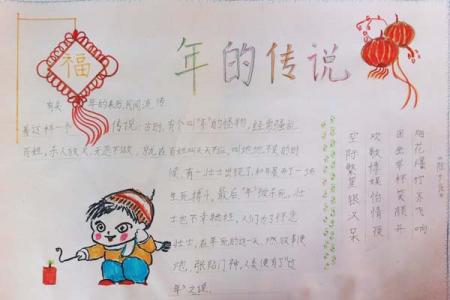 年的传说
福
有关 年的来历,民间流 传
着这样一个 传说:古时,有个叫“年”的怪物,经常骚乱
百姓,杀人放火,无恶不做,就在百姓叫天天不应,叫地地不灵的时
候,有一壮士出现了,和年展开了一场
生死搏斗,最后“年”被杀死,壮
士也不幸牺牲,人们为了怀念
壮士,在年死的这一天,燃放着鞭
炮,张贴门神,人类便有了“过
年”之说.
烟花爆竹齐飞响
围坐举杯笑颜开
欢歌
情夜
空际繁星银又呆